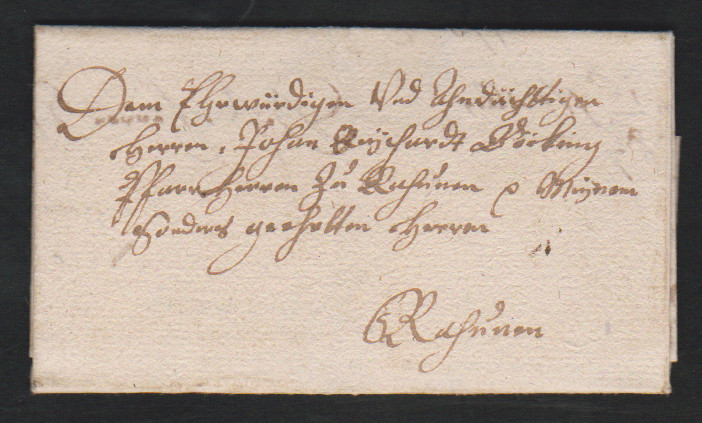 Dem Ehrwürdigen Vnd Andächtigen
Herren, Johan Reichardt Böcking
Pfarrherren zu Rahunen p Meinem
Sonders geehrten Herren
Rahunen